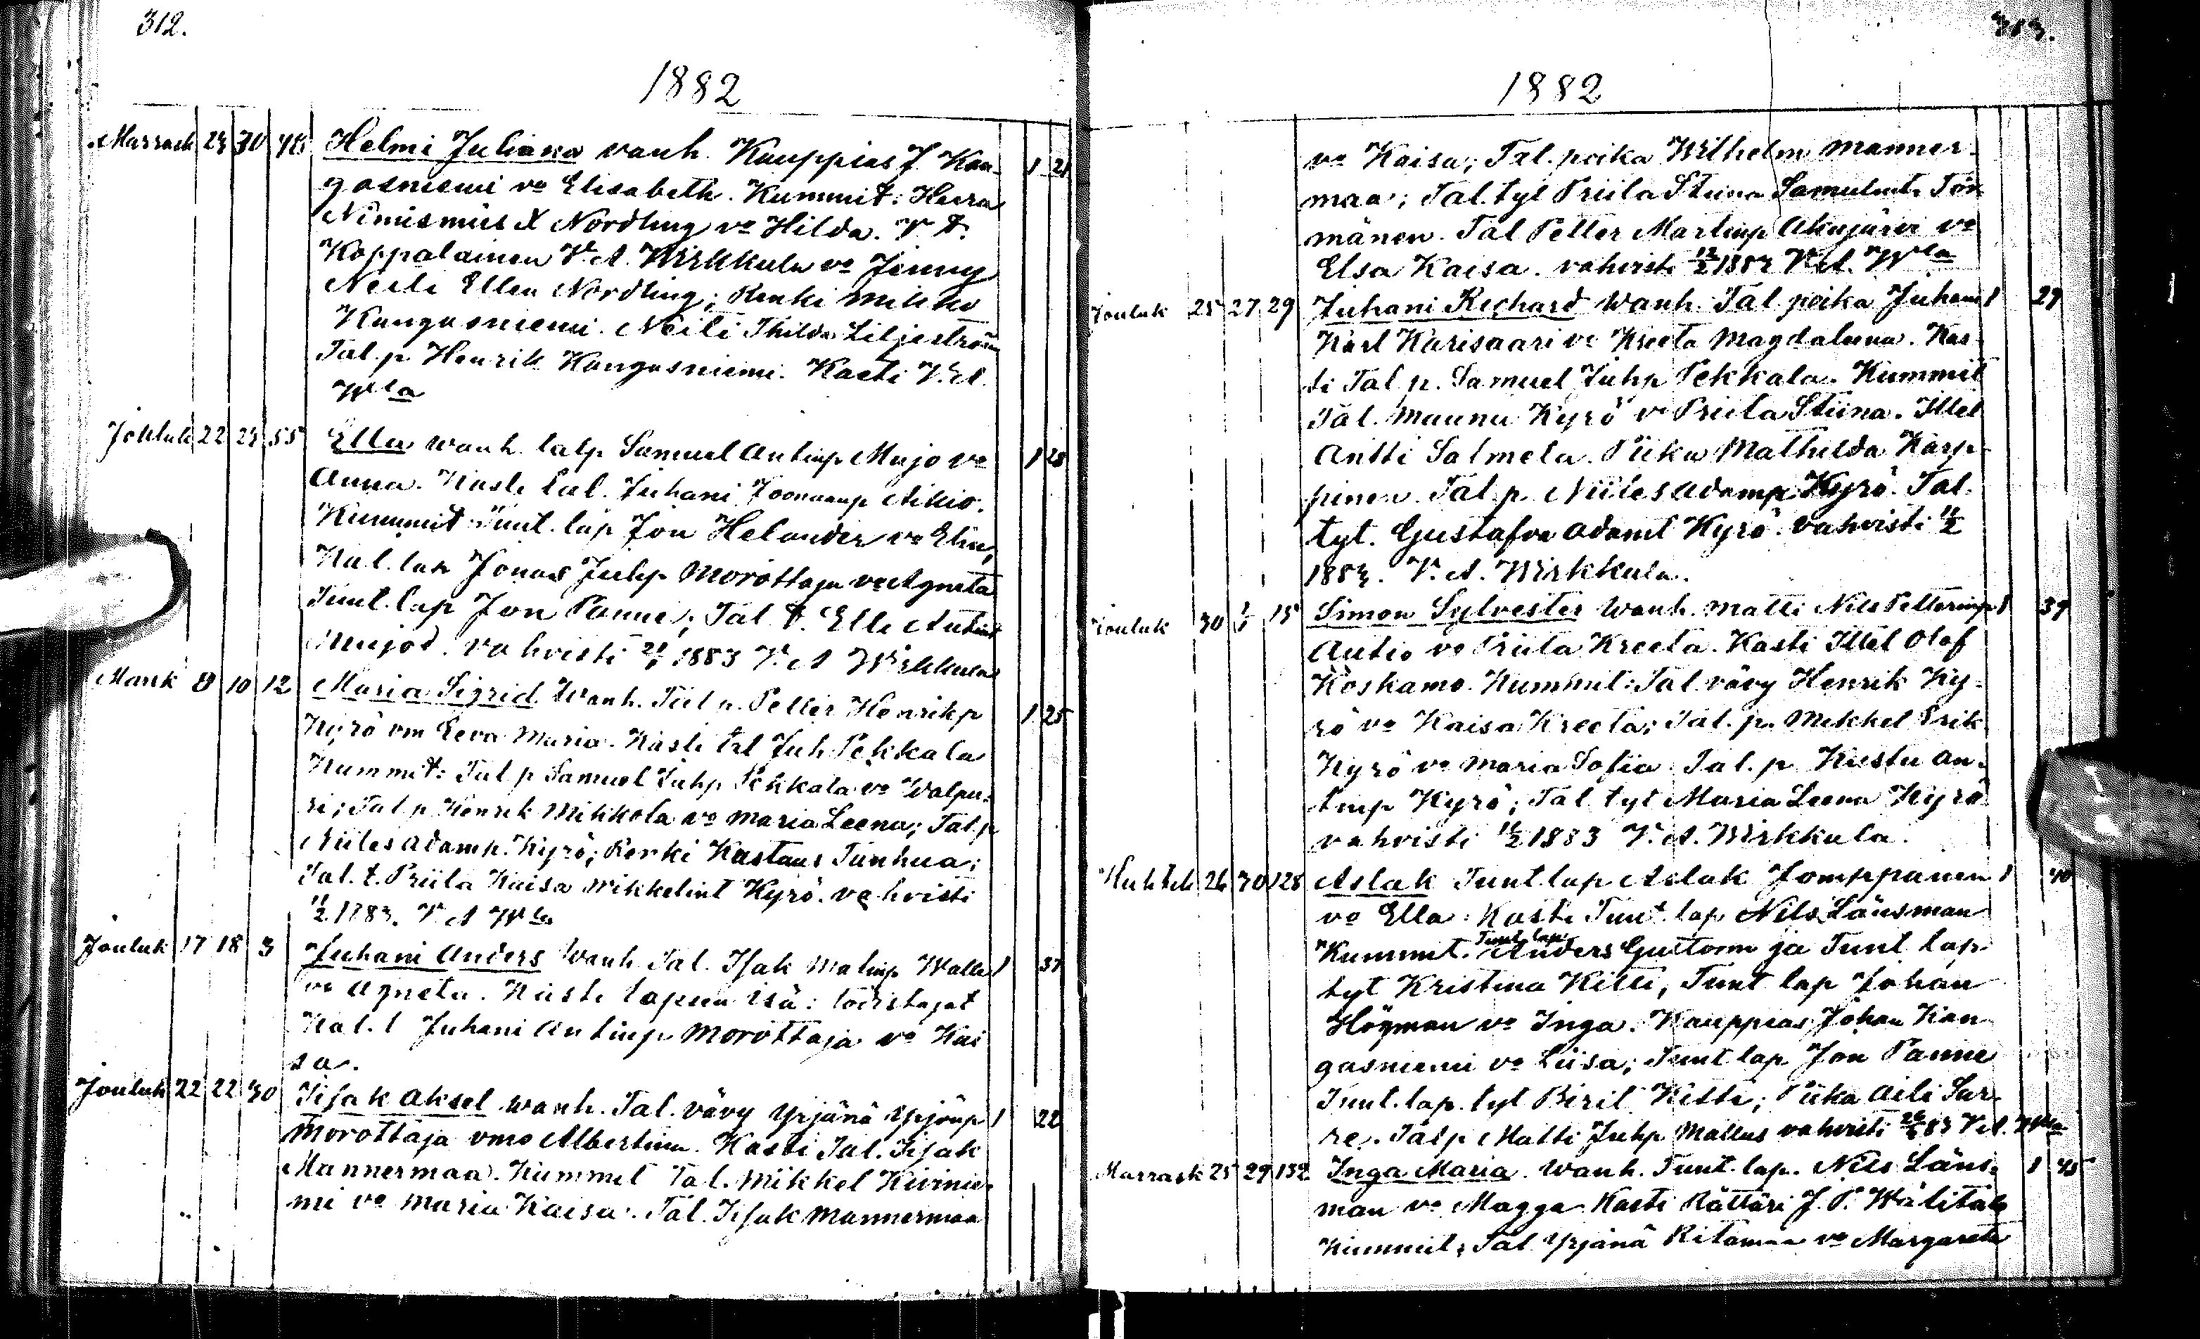 312.
1882
Marrask 24 30 48 Helmi Juliana vanh. Kauppias J. Kan- 1 21
gasniemi vo Elisabeth. Kummit: Herra
Nimismies N Nordling vo Hilda. V. t.
Koppalainen V. A. Wirkkula vo Jenny
Neiti Ellen Nordling; Renki Mikko
Kangasniemi. Neiti Thilda Liljeström
Tal. p. Henrik Kangasniemi. Kasti V. A.
W la
Jouluk 22 24 55 Ella wanh. lalp Samuel Antinp Mujo vo 1 28
Anna. Kasti Lal. Juhani Aikio.
Kummit: Tunt. lap Jon Helander vo Elin,
Kal. lap Jonas Juhp Morottaja vo Agneta
Tunt. lap Jon Panne; Tal. t. Elli
Mujod. vahvisti 1883 V. A Wirkkula
8 10 12 Maria Sigrid Wanh. Tal p. Petter Henrikp 1 25
Kyrö vm Eeva Maria. Kasti Juh Pekkala
Kummit: Tal p Samuel Juhp Pekkala vo Walpu-
ri; Tal p Henrik Mikkola vo Maria Leena; Tal p
Niiles Adamp. Kyrö; Renki Kustaus Tunhua;
Tal. t. Priita Kaisa Mikkelint Kyrö. vahvisti
11/2 1883. V. A W la
Jouluk 17 18 3 Juhani Anders Wanh Tal. Isak Matinp Walle 1 31
vo Agneta. Kasti lapsen isä: todistajat
Kal. l Juhani Antinp Morottaja vo Kai
sa.
Jouluk 22 22 30 Iisak Aksel wanh. Tal. vävy Yrjänä Yrjönp 1 22
Morottaja vmo Albertina. Kasti Tal. Iisak
Mannermaa. Kummit Tal. Mikkel Kivinie-
mi vo Maria Kaisa. Tal. Iisak Mannermaa
313.
1882
vo Kaisa; Tal. poika Wilhelm Manner-
maa; Tal. tyt Priita Stiina Samulint. Tör-
mänen. Tal Petter Martinp Akujärvi vo
Elsa Kaisa. vahvisti 12/2 1883 V. A. W la
Jouluk 25 27 29 Juhani Richard Wanh. Tal. poika Juhani 1 29
Karl Karisaari vo Kreeta Magdaleena. Kas-
ti Tal p. Samuel Juhp Pekkala. Kummit
Tal. Maunu Kyrö vo Priita Stiina. Ittel
Antti Salmela. Piika Mathilda Karp-
pinen. Tal. p. Niiles Adamp Kyrö. Tal.
tyt. Gustafva Adamt Kyrö. vahvisti 11/2
1883. V. A. Wirkkula.
Jouluk 30 1/1 15 Simon Sylvester Wanh. Matti Nils Petterinp 1 39
Autio vo Priita Kreeta. Kasti Ittel Olof
Koskamo. Kummit: Tal. vävy Henrik Ky-
rö vo Kaisa Kreeta; Tal. p. Mikkel Erik
Kyrö vo Maria Sofia. Tal. p Kustu An-
tinp Kyrö; Tal. tyt Maria Leena Kyrö
vahvisti 11/2 1883 V. A. Wirkkula.
Huhtik 26 30 128 Aslak Tunt. lap Aslak Jomppanen 1 40
vo Ella. Kasti Tunt. lap Nils Länsman
Kummit. Tunt. lap Anders Guttorm ja Tunt lap
tyt Kristina Kitti, Tunt lap Johan
Högman vo Inga. Kauppias Johan Kan-
gasniemi vo Liisa; Tunt lap Jon Panne
Tunt. lap. tyt Birit Kitti; Piika Aili Sar-
re. Tal p Matti Juhp Mattus vahvisti 83 V. A. W la
Marrask 25 29 132 Inga Maria. Wanh. Tunt. lap. Nils Läns- 1 45
man vo Magga. Kasti Rättäri J. P. Wälitalo
Kummit; Tal Yrjänä Kitamaa vo Margareta